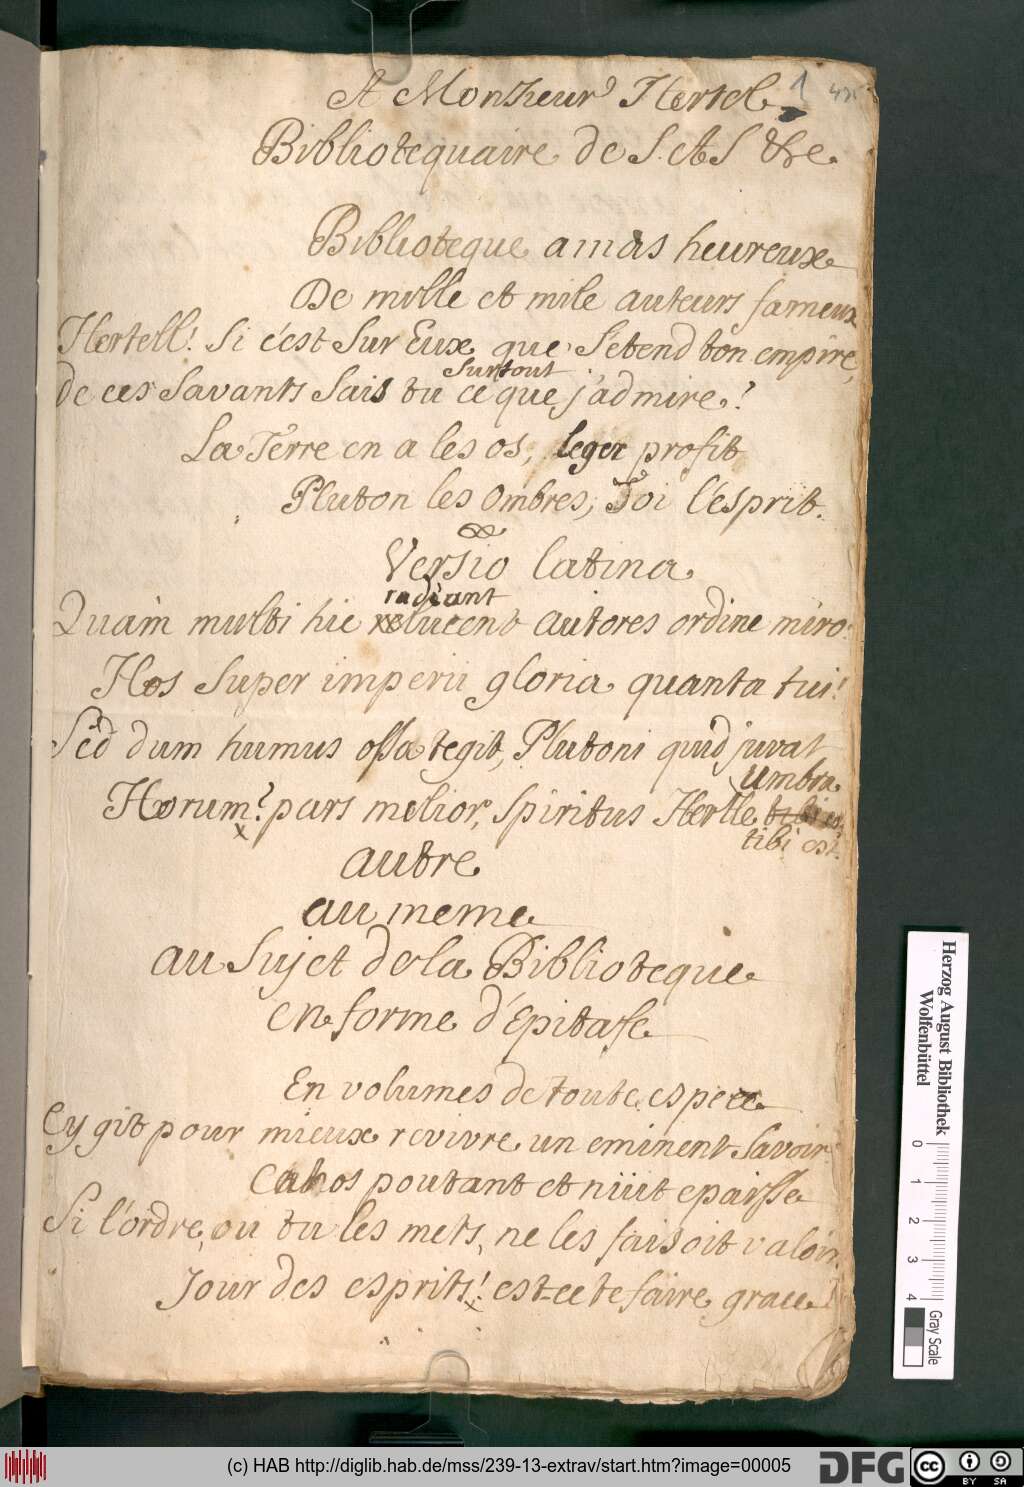 A Monsieur Hertel 1
Bibliotequaire de S. A S &c
Biblioteque amas heureux
De mille et mile auteurs fameux
Hertell! Si c'est Sur Eux que S'etend ton empire,
surtout
de ces Savants Sais tu ce que j'admire?
La Terre en a les os, leger profit
Pluton les Ombres, Toi l'esprit.
Versio latina
radiant
Quàm multi hic relucent autores ordine miro
Hos Super imperii gloria quanta tui!
Sed dum humus ossa tegit, Plutoni quid juvat
umbra
Horum? pars melior, Spiritus Hertle tibi est
tibi est.
autre
au meme
au Sujet de la Biblioteque
en forme d'Epitafe
En volumes de toute espece
Cy git pour mieux revivre un eminent Savoir
Cahos poutant et nüit epaisse
Si l'ordre, ou tu les mets, ne les faisoit valoir.
Jour des esprits! est-ce te faire grace?
Herzog August Bibliothek
Wolfenbüttel
0 1 2 3 4
Gray Scale
(c) HAB http://diglib.hab.de/mss/239-13-extrav/start.htm?image=00005
DFG
cc BY SA